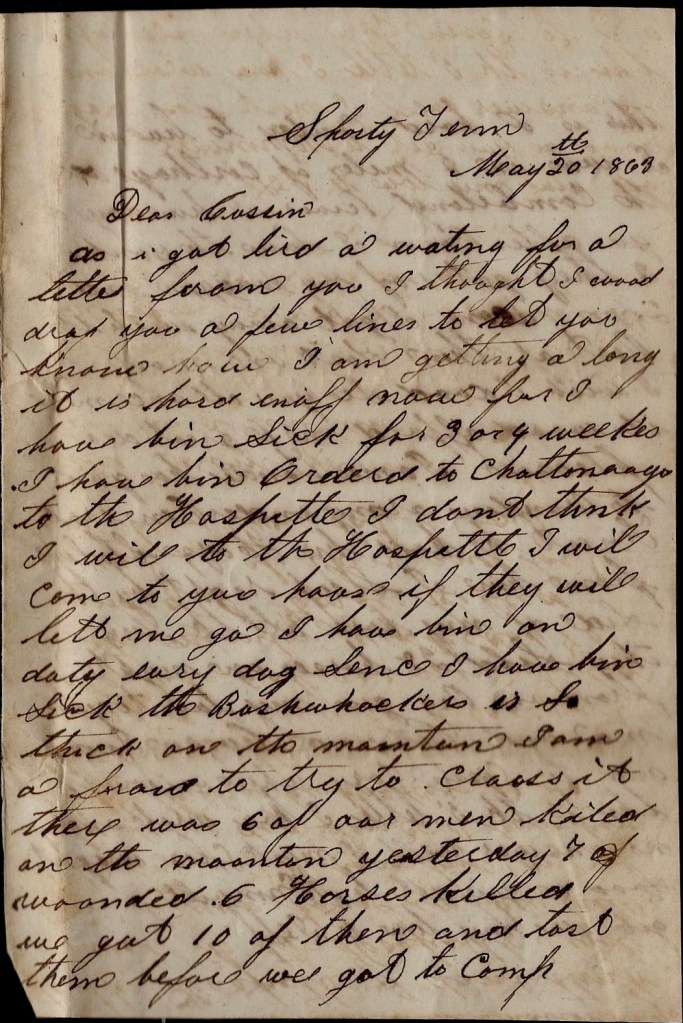 Sporty Tenn
May 20th 1863
Dear Cussin
as i got tird a wating for a
letter from you I thought I wood
drop you a few lines to let you
know how I am getting a long
it is hard enuff now for I
have bin Sick for 3 or 4 weekes
I have bin Orderd to Chattonooga
to th Hospittle I dont think
I wil to th Hospittle I wil
Come to you hous if they wil
lett me go I have bin on
duty evry day Senc I have bin
Sick th Bushwhackers is So
thick on th mountun I am
a fraid to try to Cross it
ther was 6 of our men Kiled
on th mountun yesterday 7
wounded 6 Horses Killed
we got 10 of them and lost
them before we got to Comp